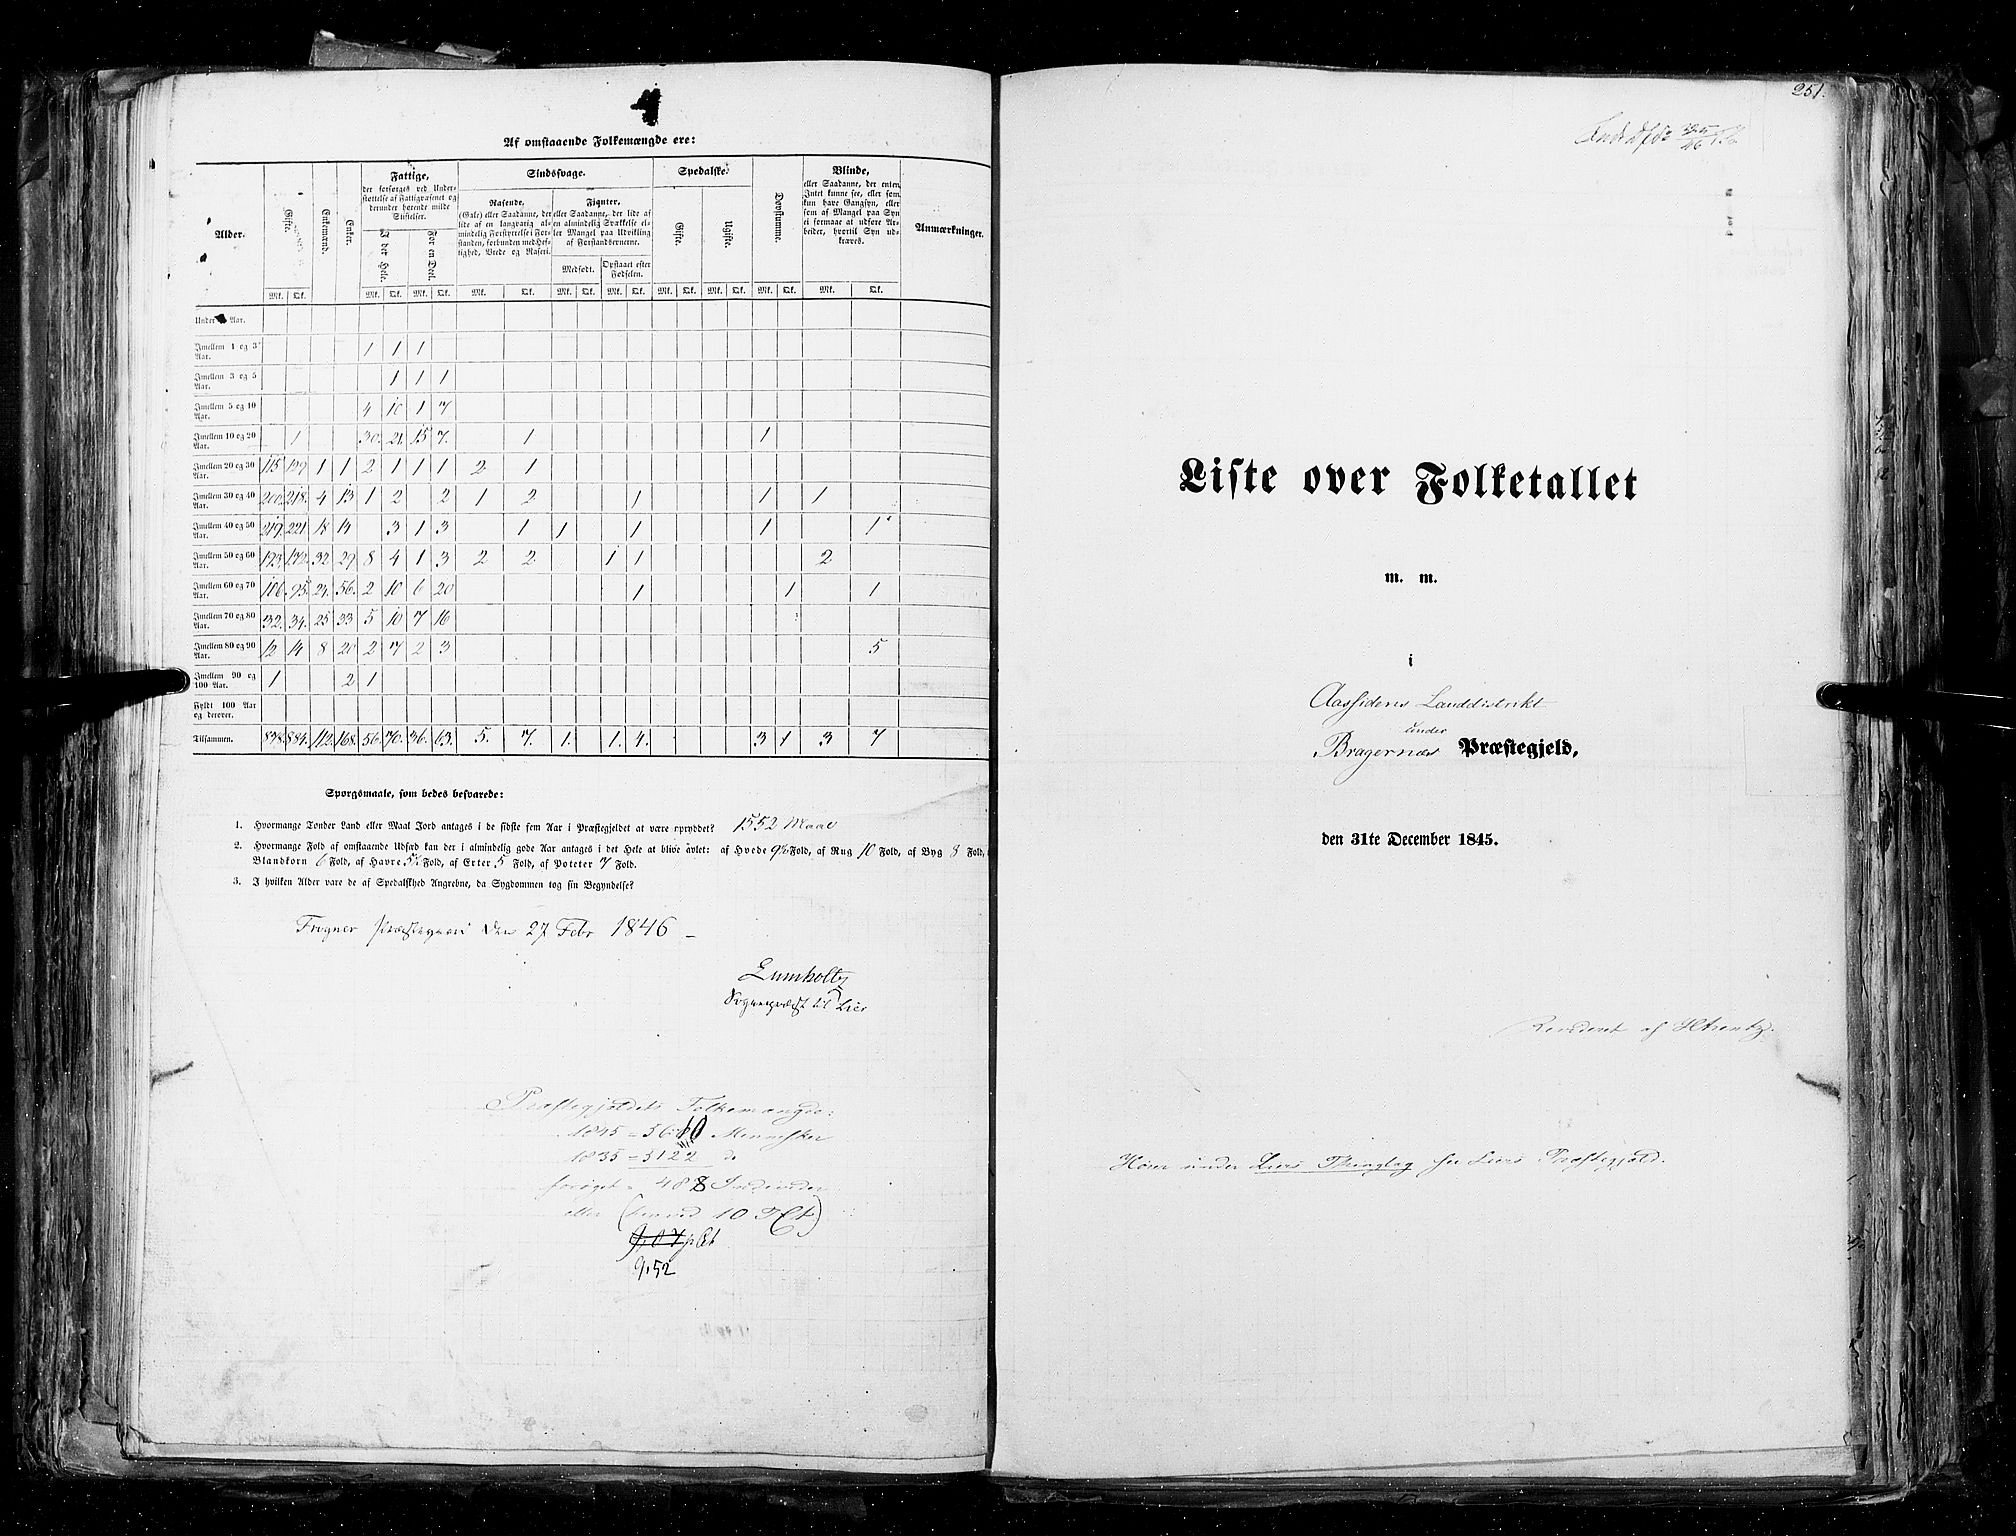 Af omstaaende Folkemængde ere:
Alder. Gifte. Enkemænd. Enker. Fattige, Sindssvage. Spedalske. Døvstumme. Blinde, Anmærkninger.
der forsørges ved Under-
støttelse af Fattigvæsenet og
derunder hørende milde
Stiftelser.
I det Hele. For en Deel.
Rasende,
(Gale) eller Saadanne, der
lide af en langvarig al-
mindelig Forstyrrelse i For-
standen, forbunden med Hef-
tighed, Vrede og Raseri.
Fjanter,
eller Saadanne, der lide af
en almindelig Svækkelse el-
ler Mangel paa Udvikling
af Forstandsevnerne.
Medfødt. Opstaaet efter Fødselen.
Gifte. Ugifte.
eller Saadanne, der enten
Intet kunne see, eller som
kun have Gangsyn, eller
som af Mangel paa Syn
ei formaae at udføre Ar-
beider, hvortil Syn ud-
kræves.
Mk. Qk. Mk. Qk. Mk. Qk. Mk. Qk. Mk. Qk. Mk. Qk. Mk. Qk. Mk. Qk. Mk. Qk. Mk. Qk.
Under Aar.
Imellem 1 og 3 Aar. 1 1 1
Imellem 3 og 5 Aar. 1 1 1
Imellem 5 og 10 Aar. 4 10 1 7
Imellem 10 og 20 Aar. 1 30. 21. 15 7. 1 1
Imellem 20 og 30 Aar. 115 129 1 1 2 1 1 1 2 1
Imellem 30 og 40 Aar. 200. 218. 4 13 1 2 2 1 2 1 1 1
Imellem 40 og 50 Aar. 219. 221. 18 14 3 1 3 1 1 1 1 1
Imellem 50 og 60 Aar. 193. 172. 32 29 8 4 1 3 2 2 1 1 2
Imellem 60 og 70 Aar. 106. 95. 24. 56. 2 10 6 20 1 1 1
Imellem 70 og 80 Aar. 32. 34. 25 33 5 10 7 16
Imellem 80 og 90 Aar. 12 14 8 20 2 7 2 3 5
Imellem 90 og 100 Aar. 1 2 1
Fyldt 100 Aar og derover.
Tilsammen. 878. 884. 112. 168. 56. 70. 36. 63. 5. 7. 1. 1. 4. 3 1 3 7
Spørgsmaale, som bedes besvarede:
1. Hvormange Tønder Land eller Maal Jord antages i de sidste fem Aar i Præstegjeldet at være opryddet? 1552 Maal
2. Hvormange Fold af omstaaende Udsæd kan der i almindelig gode Aar antages i det Hele at blive avlet: af Hvede 9½ Fold, af Rug 10 Fold, af Byg 8 Fold,
Blandkorn 6 Fold, af Havre 5½ Fold, af Erter 5 Fold, af Poteter 7 Fold.
3. I hvilken Alder vare de af Spedalskhed Angrebne, da Sygdommen tog sin Begyndelse?
Frogner Præstegaard den 27 Febr 1846
Lumholtz
Sognepræst til Lier
Præstegjeldets Folkemængde:
1845 = 5610 Mennesker
1835 = 5122 do
forøget = 488 Individer
eller (henved 10 PCt)
9,52
251.
Liste over Folketallet
m. m.
i
Aassidens Landdistrikt
under
Bragernæs Præstegjeld,
den 31te December 1845.
Revideret af
Hører under Liers Thinglag see Liers Præstegjeld.